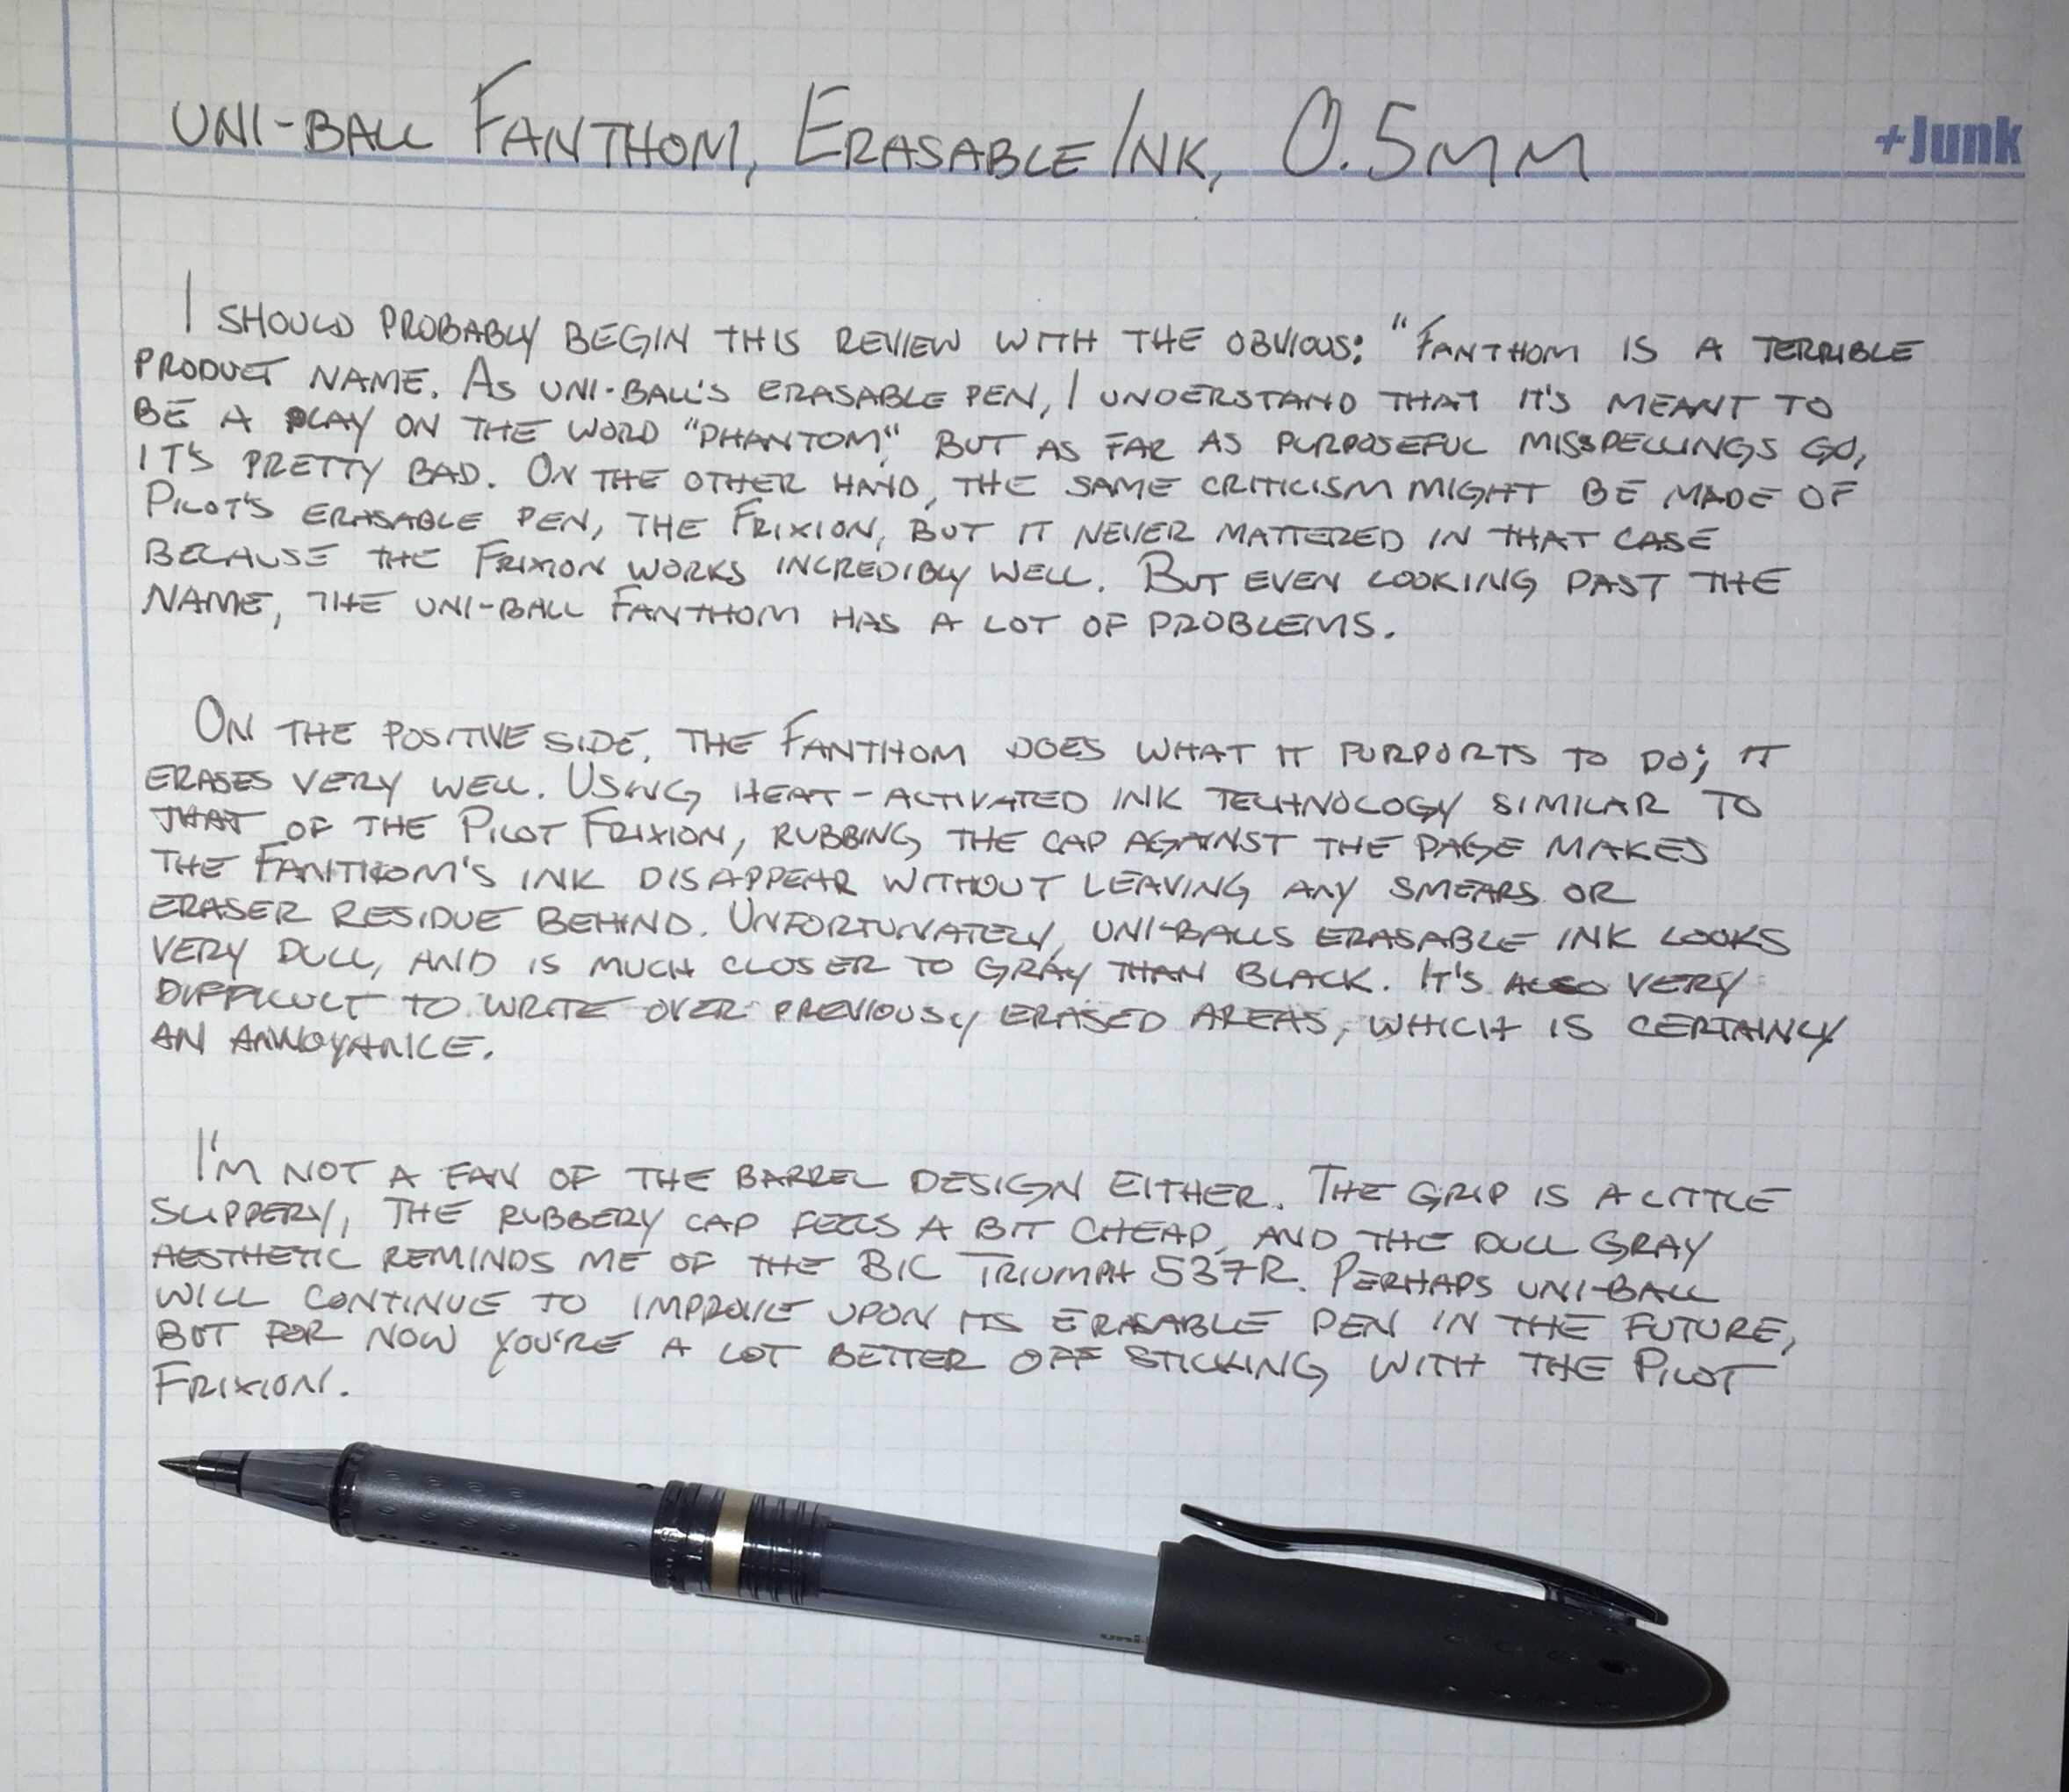 UNI-BALL FANTHOM, ERASABLE INK, 0.5MM
+Junk
I SHOULD PROBABLY BEGIN THIS REVIEW WITH THE OBVIOUS: "FANTHOM IS A TERRIBLE
PRODUCT NAME. AS UNI-BALL'S ERASABLE PEN, I UNDERSTAND THAT IT'S MEANT TO
BE A PLAY ON THE WORD "PHANTOM," BUT AS FAR AS PURPOSEFUL MISSPELLINGS GO,
IT'S PRETTY BAD. ON THE OTHER HAND, THE SAME CRITICISM MIGHT BE MADE OF
PILOT'S ERASABLE PEN, THE FRIXION, BUT IT NEVER MATTERED IN THAT CASE
BECAUSE THE FRIXION WORKS INCREDIBLY WELL. BUT EVEN LOOKING PAST THE
NAME, THE UNI-BALL FANTHOM HAS A LOT OF PROBLEMS.
ON THE POSITIVE SIDE, THE FANTHOM DOES WHAT IT PURPORTS TO DO; IT
ERASES VERY WELL. USING HEAT-ACTIVATED INK TECHNOLOGY SIMILAR TO
THAT OF THE PILOT FRIXION, RUBBING THE CAP AGAINST THE PAGE MAKES
THE FANTHOM'S INK DISAPPEAR WITHOUT LEAVING ANY SMEARS OR
ERASER RESIDUE BEHIND. UNFORTUNATELY, UNI-BALLS ERASABLE INK LOOKS
VERY DULL, AND IS MUCH CLOSER TO GRAY THAN BLACK. IT'S ALSO VERY
DIFFICULT TO WRITE OVER PREVIOUSLY ERASED AREAS, WHICH IS CERTAINLY
AN ANNOYANCE.
I'M NOT A FAN OF THE BARREL DESIGN EITHER. THE GRIP IS A LITTLE
SLIPPERY, THE RUBBERY CAP FEELS A BIT CHEAP, AND THE DULL GRAY
AESTHETIC REMINDS ME OF THE BIC TRIUMPH 537R. PERHAPS UNI-BALL
WILL CONTINUE TO IMPROVE UPON ITS ERASABLE PEN IN THE FUTURE,
BUT FOR NOW YOU'RE A LOT BETTER OFF STICKING WITH THE PILOT
FRIXION.
uni